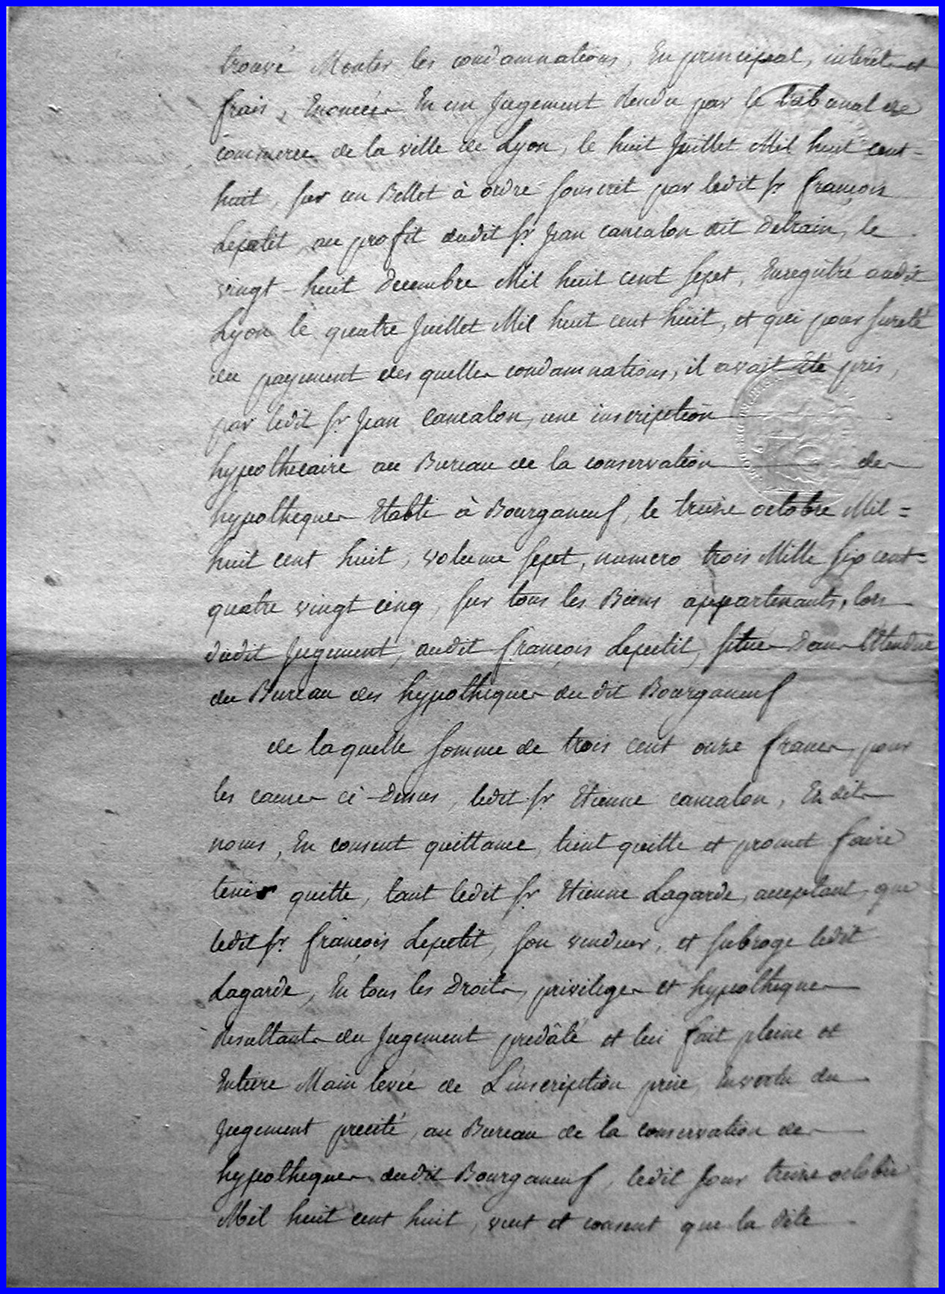 trouvé Monter les condamnations, En principal, intérêts et
frais, Enoncées En un Jugement Rendu par le tribunal de
commerce de la ville de Lyon, le huit Juillet Mil huit cent-
huit, sur un Billet à ordre souscrit par ledit Sr françois
Lepetit, au profit dudit Sr Jean cancalon dit Delrain, le
vingt-huit Decembre Mil huit cent sept, Enregistré audit
Lyon le quatre Juillet Mil huit cent huit, et qui pour sureté
du payement des quelles condamnations, il avait Eté pris,
par ledit Sr Jean Cancalon, une inscription
hypothecaire au Bureau de la conservation des
hypotheques Etabli à Bourganeuf, le treize octobre Mil=
huit cent huit, volume sept, numero trois Mille six cent=
quatre vingt cinq, sur tous les Biens appartenants, lors
dudit Jugement, audit françois Lepetit, situés Dans L'Etendue
du Bureau des hypotheques du dit Bourganeuf
de laquelle somme de trois cent onze francs, pour
les causes ci-Dessus, ledit Sr Etienne cancalon, Es dits
noms, En consent quittance, tient quitte et promet faire
tenir quitte, tant ledit Sr Etienne Lagarde, acceptant, que
ledit Sr françois Lepetit, son vendeur, et subroge ledit
Lagarde, En tous les Droits, privileges et hypotheques
Resultants du Jugement predâté et lui fait pleine et
Entiere Main levée de L'inscription prise, Envertu du
Jugement precité, au Bureau de la conservation des
hypotheques dudit Bourganeuf, ledit Jour treize octobre
Mil huit cent huit, veut et consent que la dite